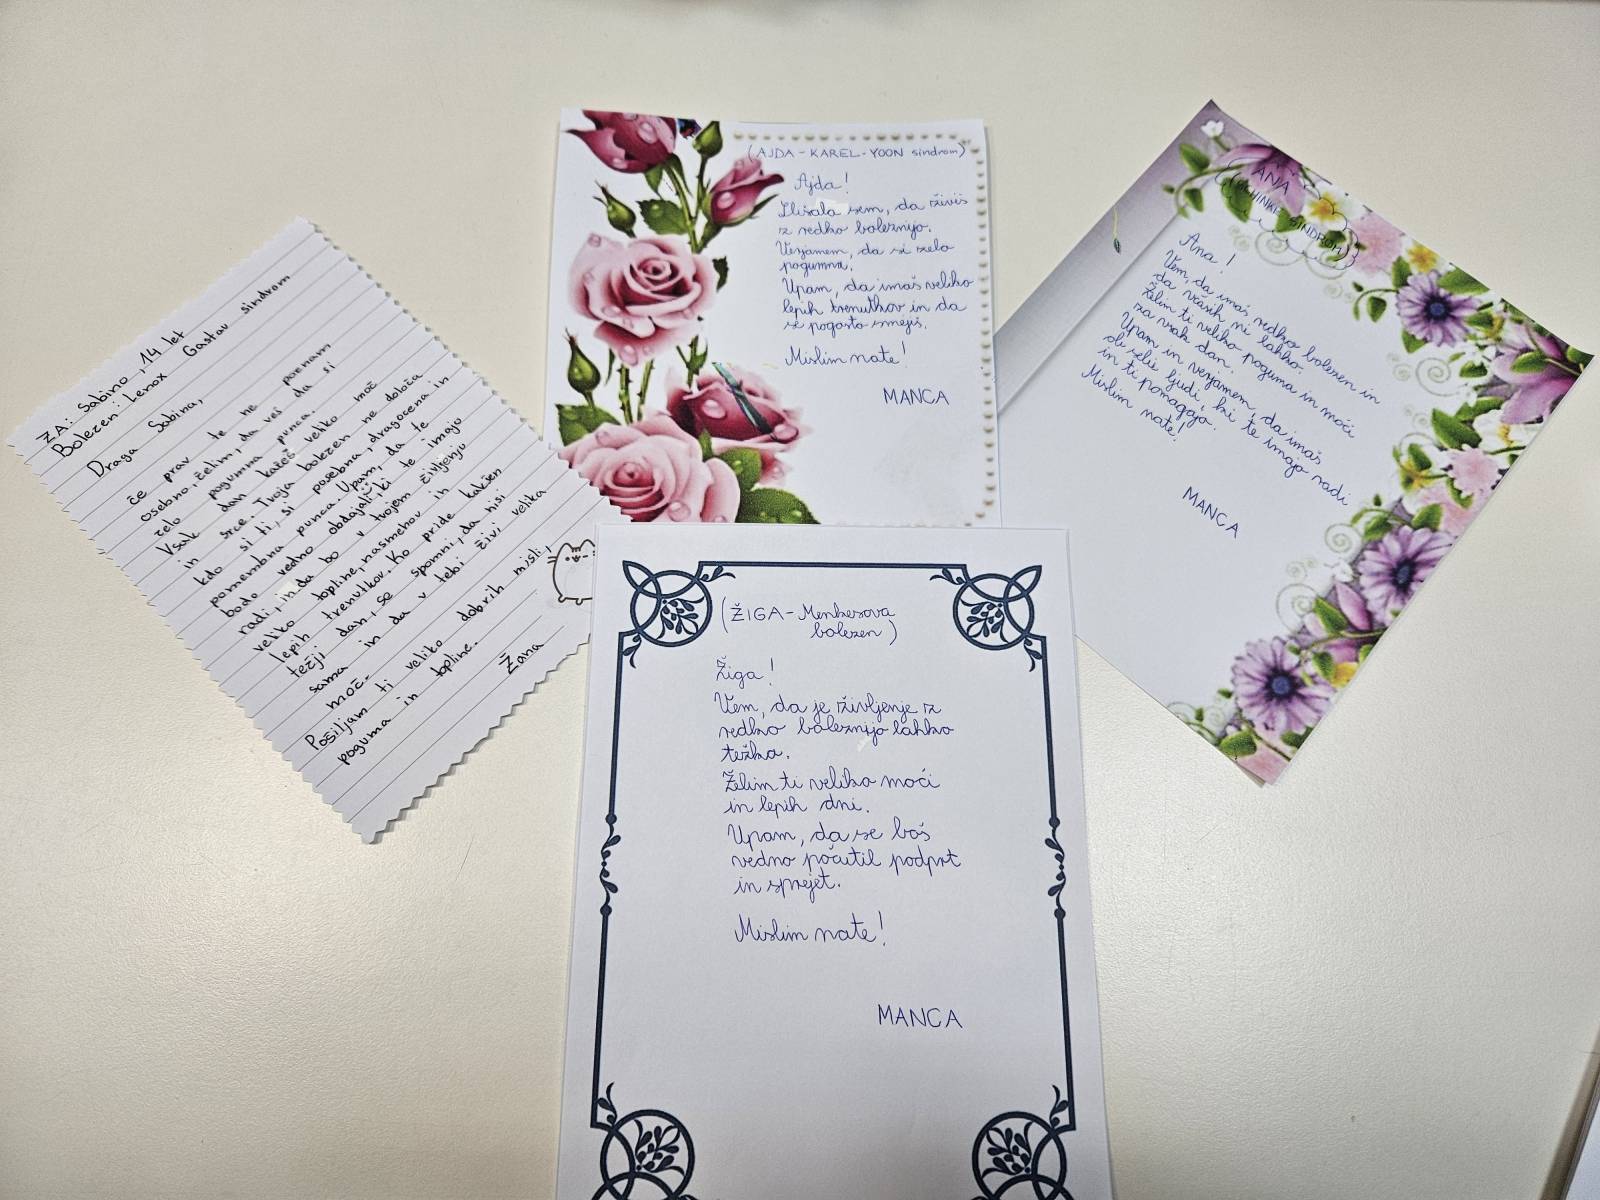 ZA: Sabino, 14 let
Bolezen: Lenox Gastav sindrom
Draga Sabina,
če prav te ne poznam
osebno, želim, da veš da si
zelo pogumna punca.
Vsak dan kažeš veliko moč
in srce. Tvoja bolezen ne določa
kdo si ti, si posebna, dragocena in
pomembna punca. Upam, da te
bodo vedno obdajali, ki te imajo
radi, in da bo v tvojem življenju
veliko topline, nasmehov in
lepih trenutkov. Ko pride kakšen
težji dan, se spomni, da nisi
sama in da v tebi živi velika
moč.
Pošiljam ti veliko dobrih misli,
poguma in topline.
Žana
(AJDA-KAREL-YOON sindrom)
Ajda!
Slišala sem, da živiš
z redko boleznijo.
Verjamem, da si zelo
pogumna.
Upam, da imaš veliko
lepih trenutkov in da
se pogosto smejiš.
Mislim nate!
MANCA
ANA
SINDROM)
Ana!
Vem, da imaš redko bolezen in
da včasih ni lahko.
Želim ti veliko poguma in moči
za vsak dan.
Upam in verjamem, da imaš
ob sebi ljudi, ki te imajo radi
in ti pomagajo.
Mislim nate!
MANCA
(ŽIGA-Menkesova
bolezen)
Žiga!
Vem, da je življenje z
redko boleznijo lahko
težko.
Želim ti veliko moči
in lepih dni.
Upam, da se boš
vedno počutil podprt
in sprejet.
Mislim nate!
MANCA